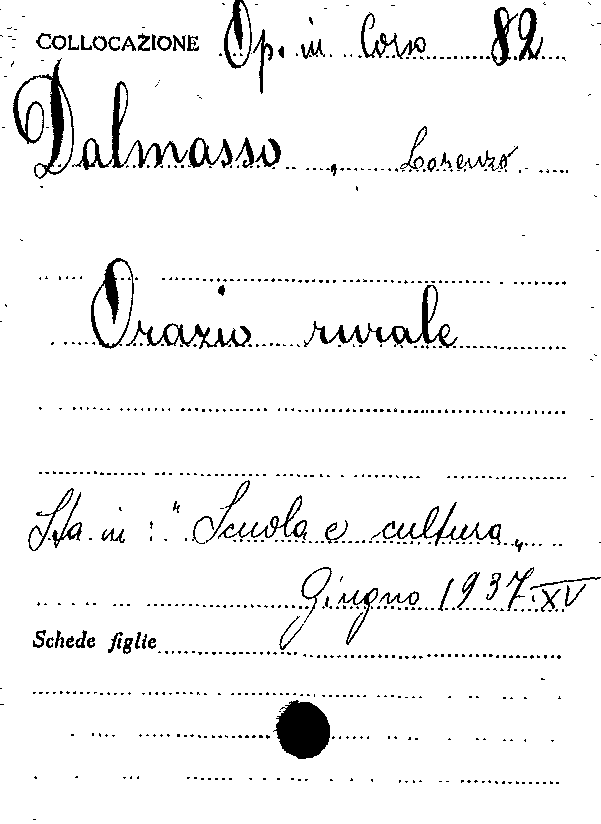 COLLOCAZIONE Op. in Corso 82
Dalmasso, Lorenzo
Orazio rurale
Sta in: "Scuola e cultura„
Giugno 1937-XV
Schede figlie